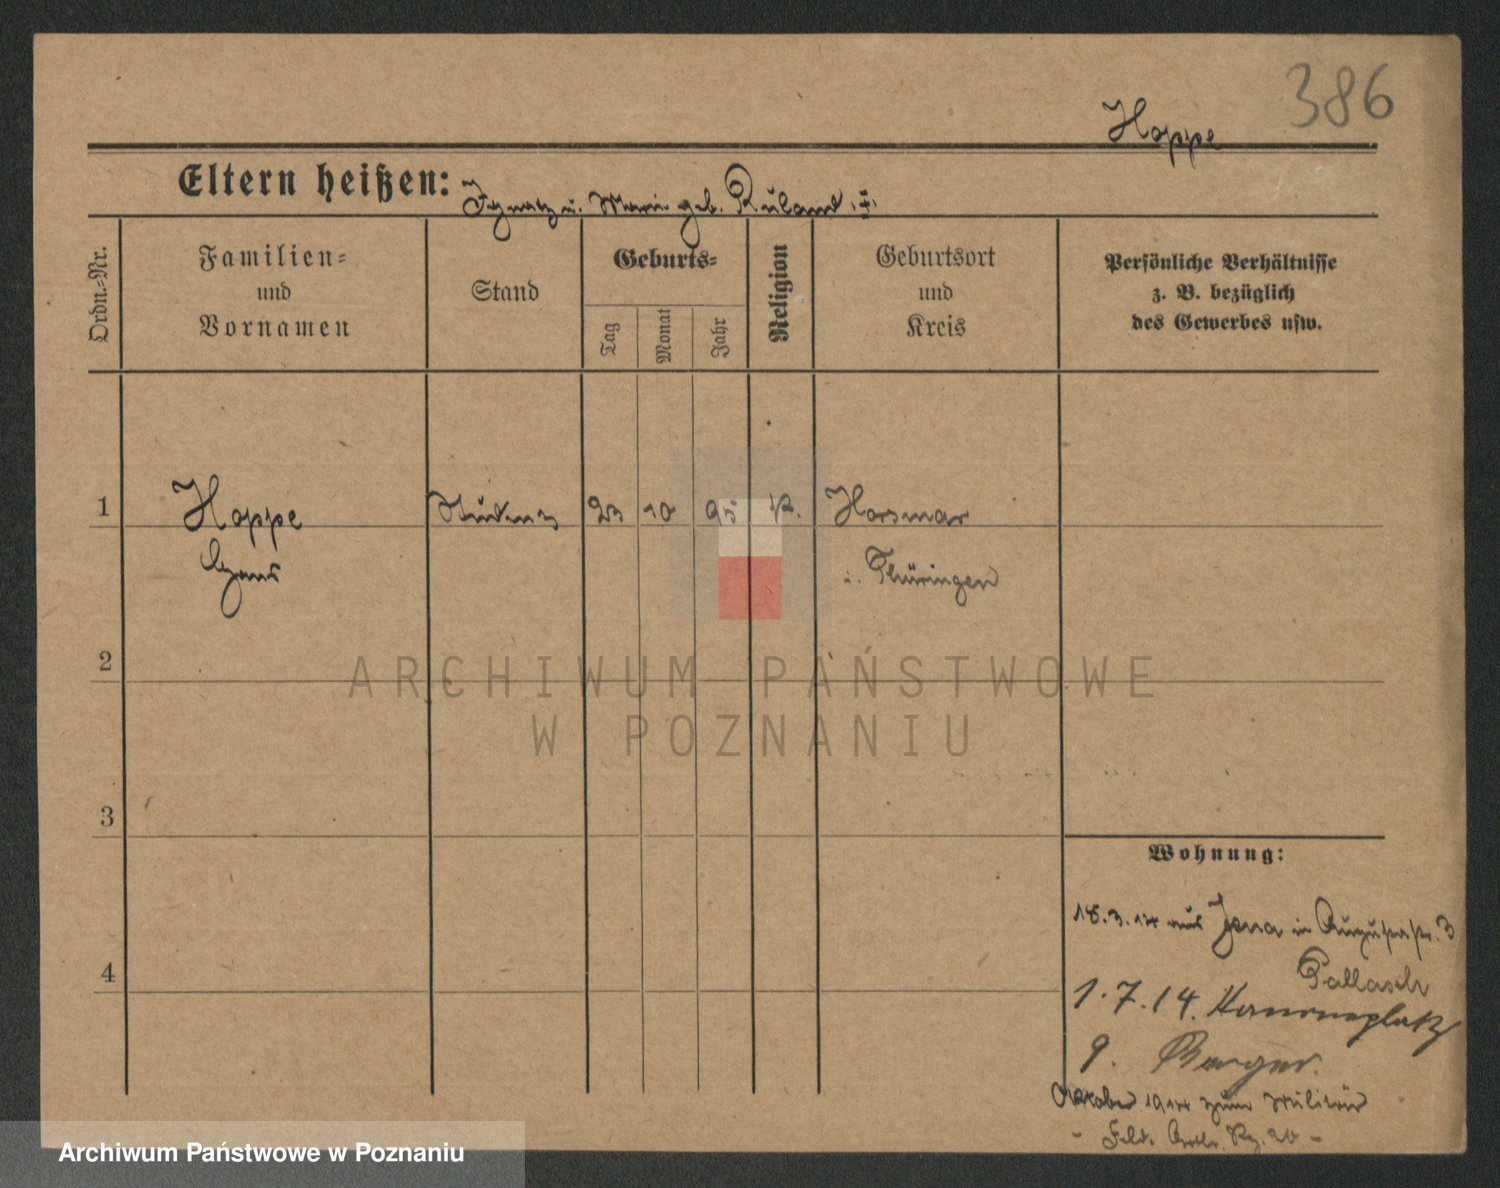 386
Hoppe
Eltern heißen: Ignatz u. Marie geb. Ruland
Ordn.-Nr.
Familien-
und
Vornamen
Stand
Geburts-
Tag
Monat
Jahr
Religion
Geburtsort
und
Kreis
Persönliche Verhältnisse
z. B. bezüglich
des Gewerbes usw.
1
Hoppe
Hans
Student
23 10 95 k.
Horsmar
i. Thüringen
2
ARCHIWUM PAŃSTWOWE
W POZNANIU
3
Wohnung:
18.3.14 aus Jena in Augustastr. 3
Pallasch
4
1.7.14. Kanonenplatz
9. Berger.
Oktober 1914 zum Militär
- Feld. Artl. Rg. 20 -
Archiwum Państwowe w Poznaniu